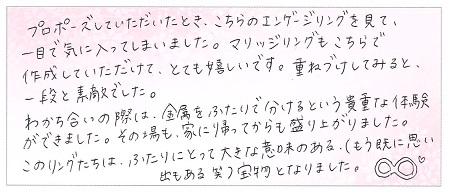 プロポーズしていただいたとき、こちらのエンゲージリングを見て、
一目で気に入ってしまいました。マリッジリングもこちらで
作成していただけて、とても嬉しいです。重ねづけしてみると、
一段と素敵でした。
わかち合いの際は、金属をふたりで分けるという貴重な体験
ができました。その場も、家に帰ってからも盛り上がりました。
このリングたちは、ふたりにとって大きな意味のある、(もう既に思い
出もある笑)宝物となりました。